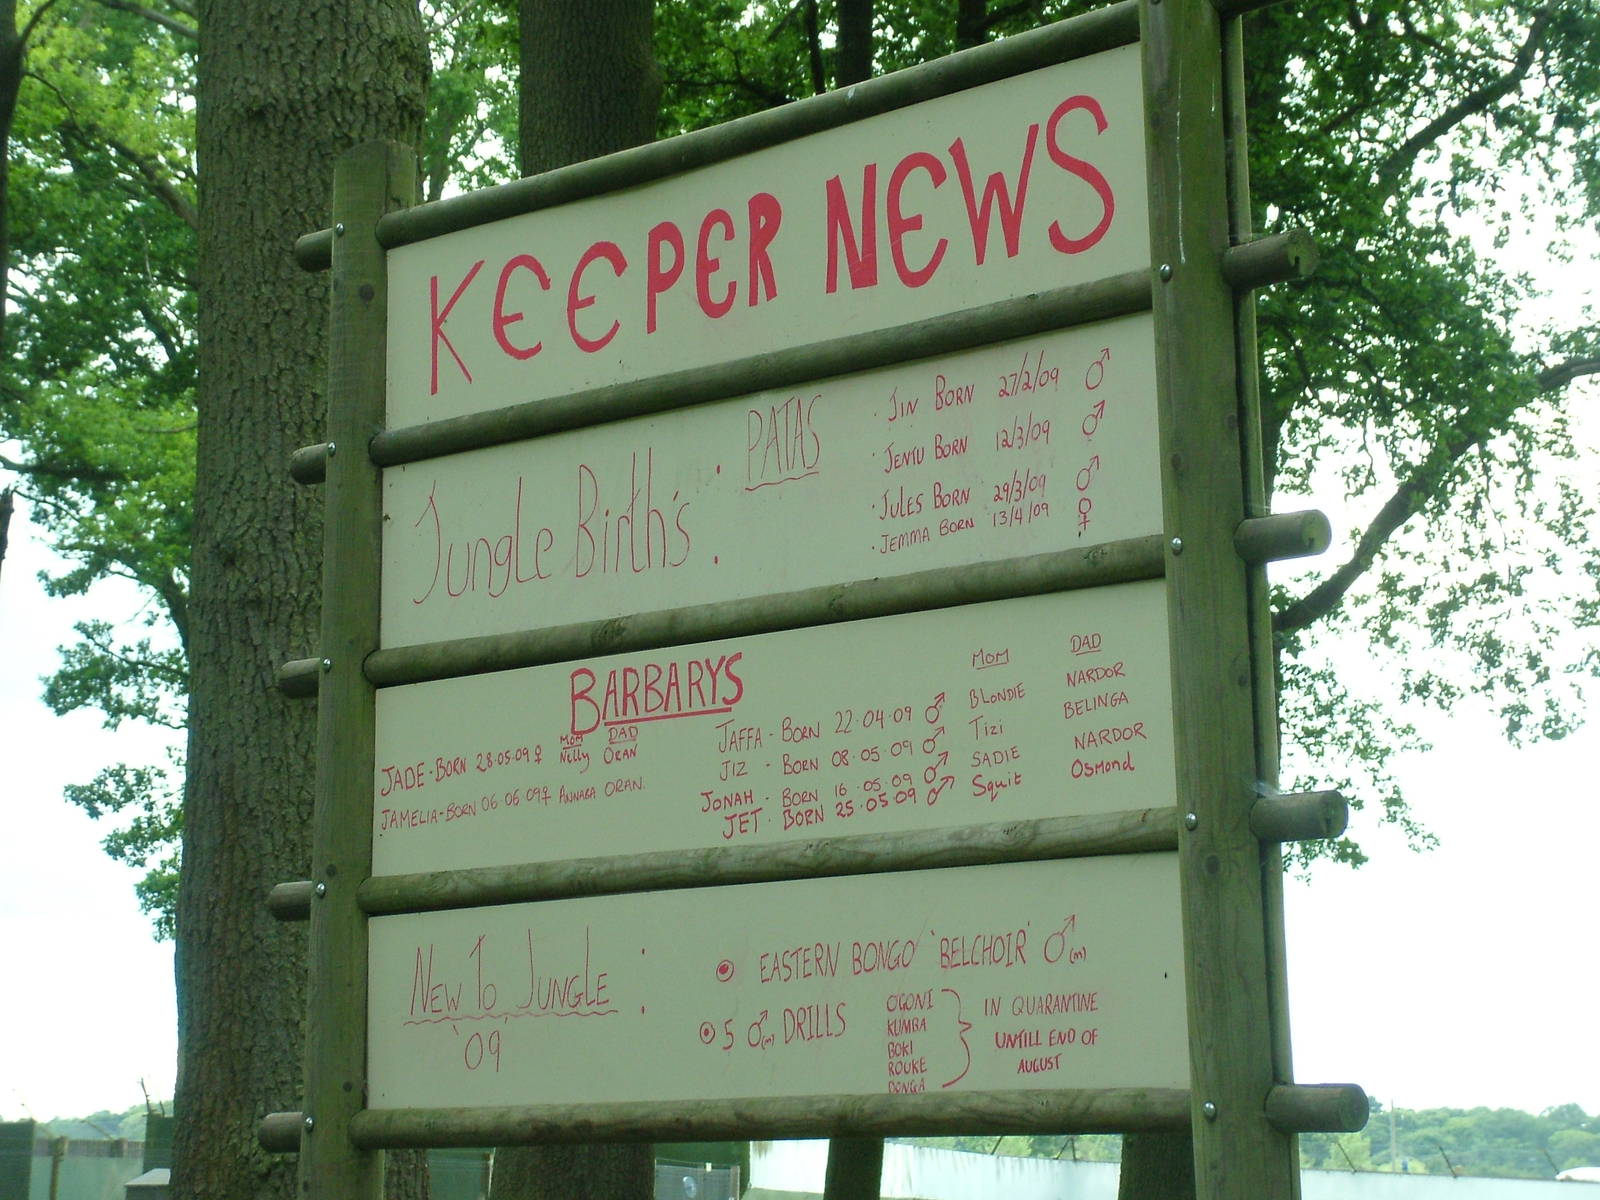 KEEPER NEWS
Jungle Birth's : PATAS
· JIN BORN 27/2/09 ♂
· JENTU BORN 12/3/09 ♂
· JULES BORN 29/3/09 ♂
· JEMMA BORN 13/4/09 ♀
BARBARYS
MOM DAD
JADE - BORN 28.05.09 ♀ Nilly ORAN
JAMELIA - BORN 06.06.09 ♀ ANNABA ORAN.
MOM DAD
JAFFA - BORN 22.04.09 ♂ BLONDIE NARDOR
JIZ - BORN 08.05.09 ♂ Tizi BELINGA
JONAH - BORN 16.05.09 ♂ SADIE NARDOR
JET - BORN 25.05.09 ♂ Squit Osmond
NEW TO JUNGLE :
'09'
EASTERN BONGO 'BELCHOIR' ♂(m)
5 ♂(m) DRILLS
OGONI
KUMBA
BOKI
ROUKE
DONGA
IN QUARANTINE
UNTILL END OF
AUGUST